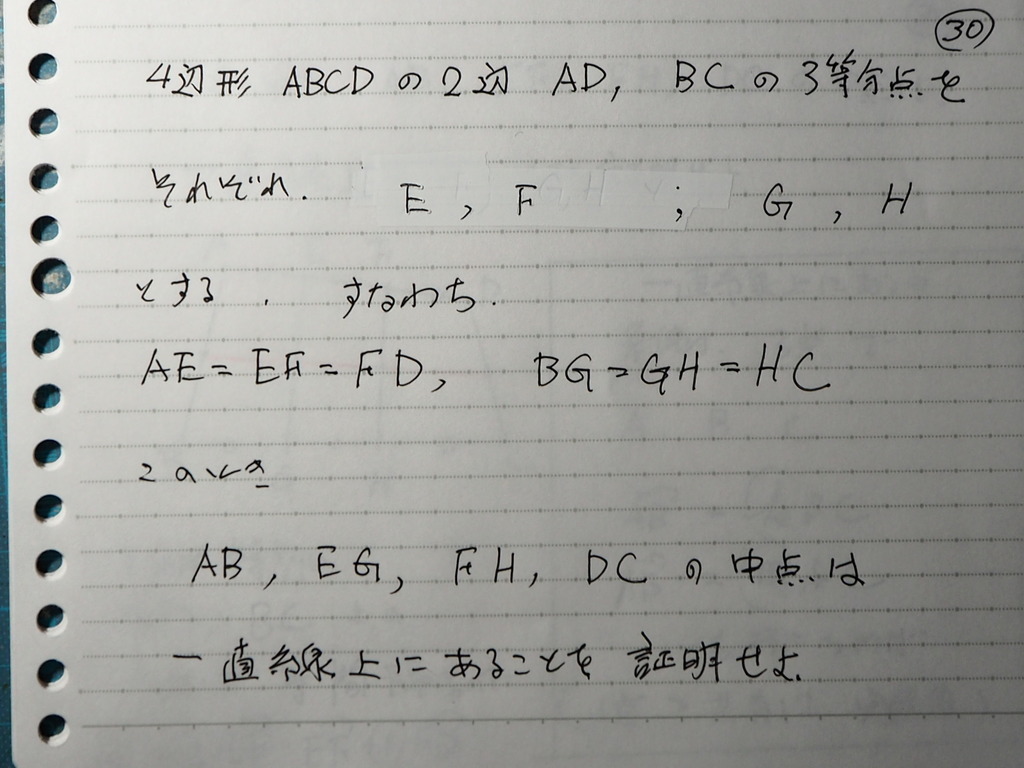 30
4辺形 ABCD の 2辺 AD, BC の 3等分点を
それぞれ. E, F ; G, H
とする. すなわち.
AE=EF=FD, BG=GH=HC
このとき
AB, EG, FH, DC の中点は
一直線上にあることを証明せよ.